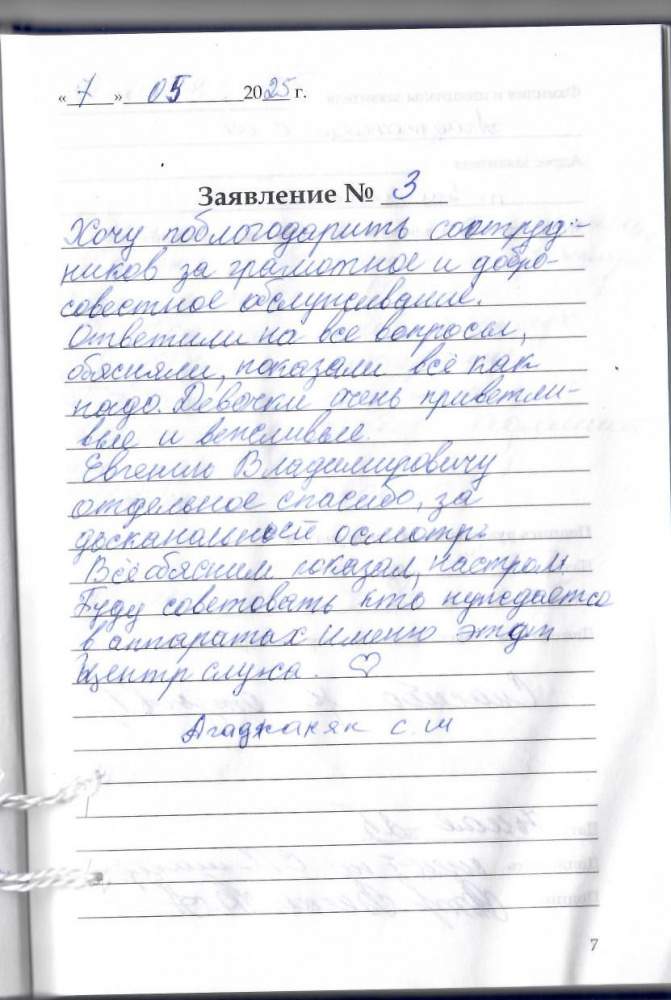 « 7 » 05 2025 г.
Заявление № 3
Хочу поблогодарить соотруд-
ников за грамотное и добро-
совестное обслуживание.
Ответили на все вопросы,
обяснили, показали всё как
надо. Девочки очень приветли-
вые и вежливые.
Евгению Владимировичу
отдельное спасибо, за
досканальный осмотр.
Всё обяснил показал, настроил
Буду советовать кто нуждается
в аппаратах именно этот
центр слуха. ♡
Агаджанян С. Ш
7